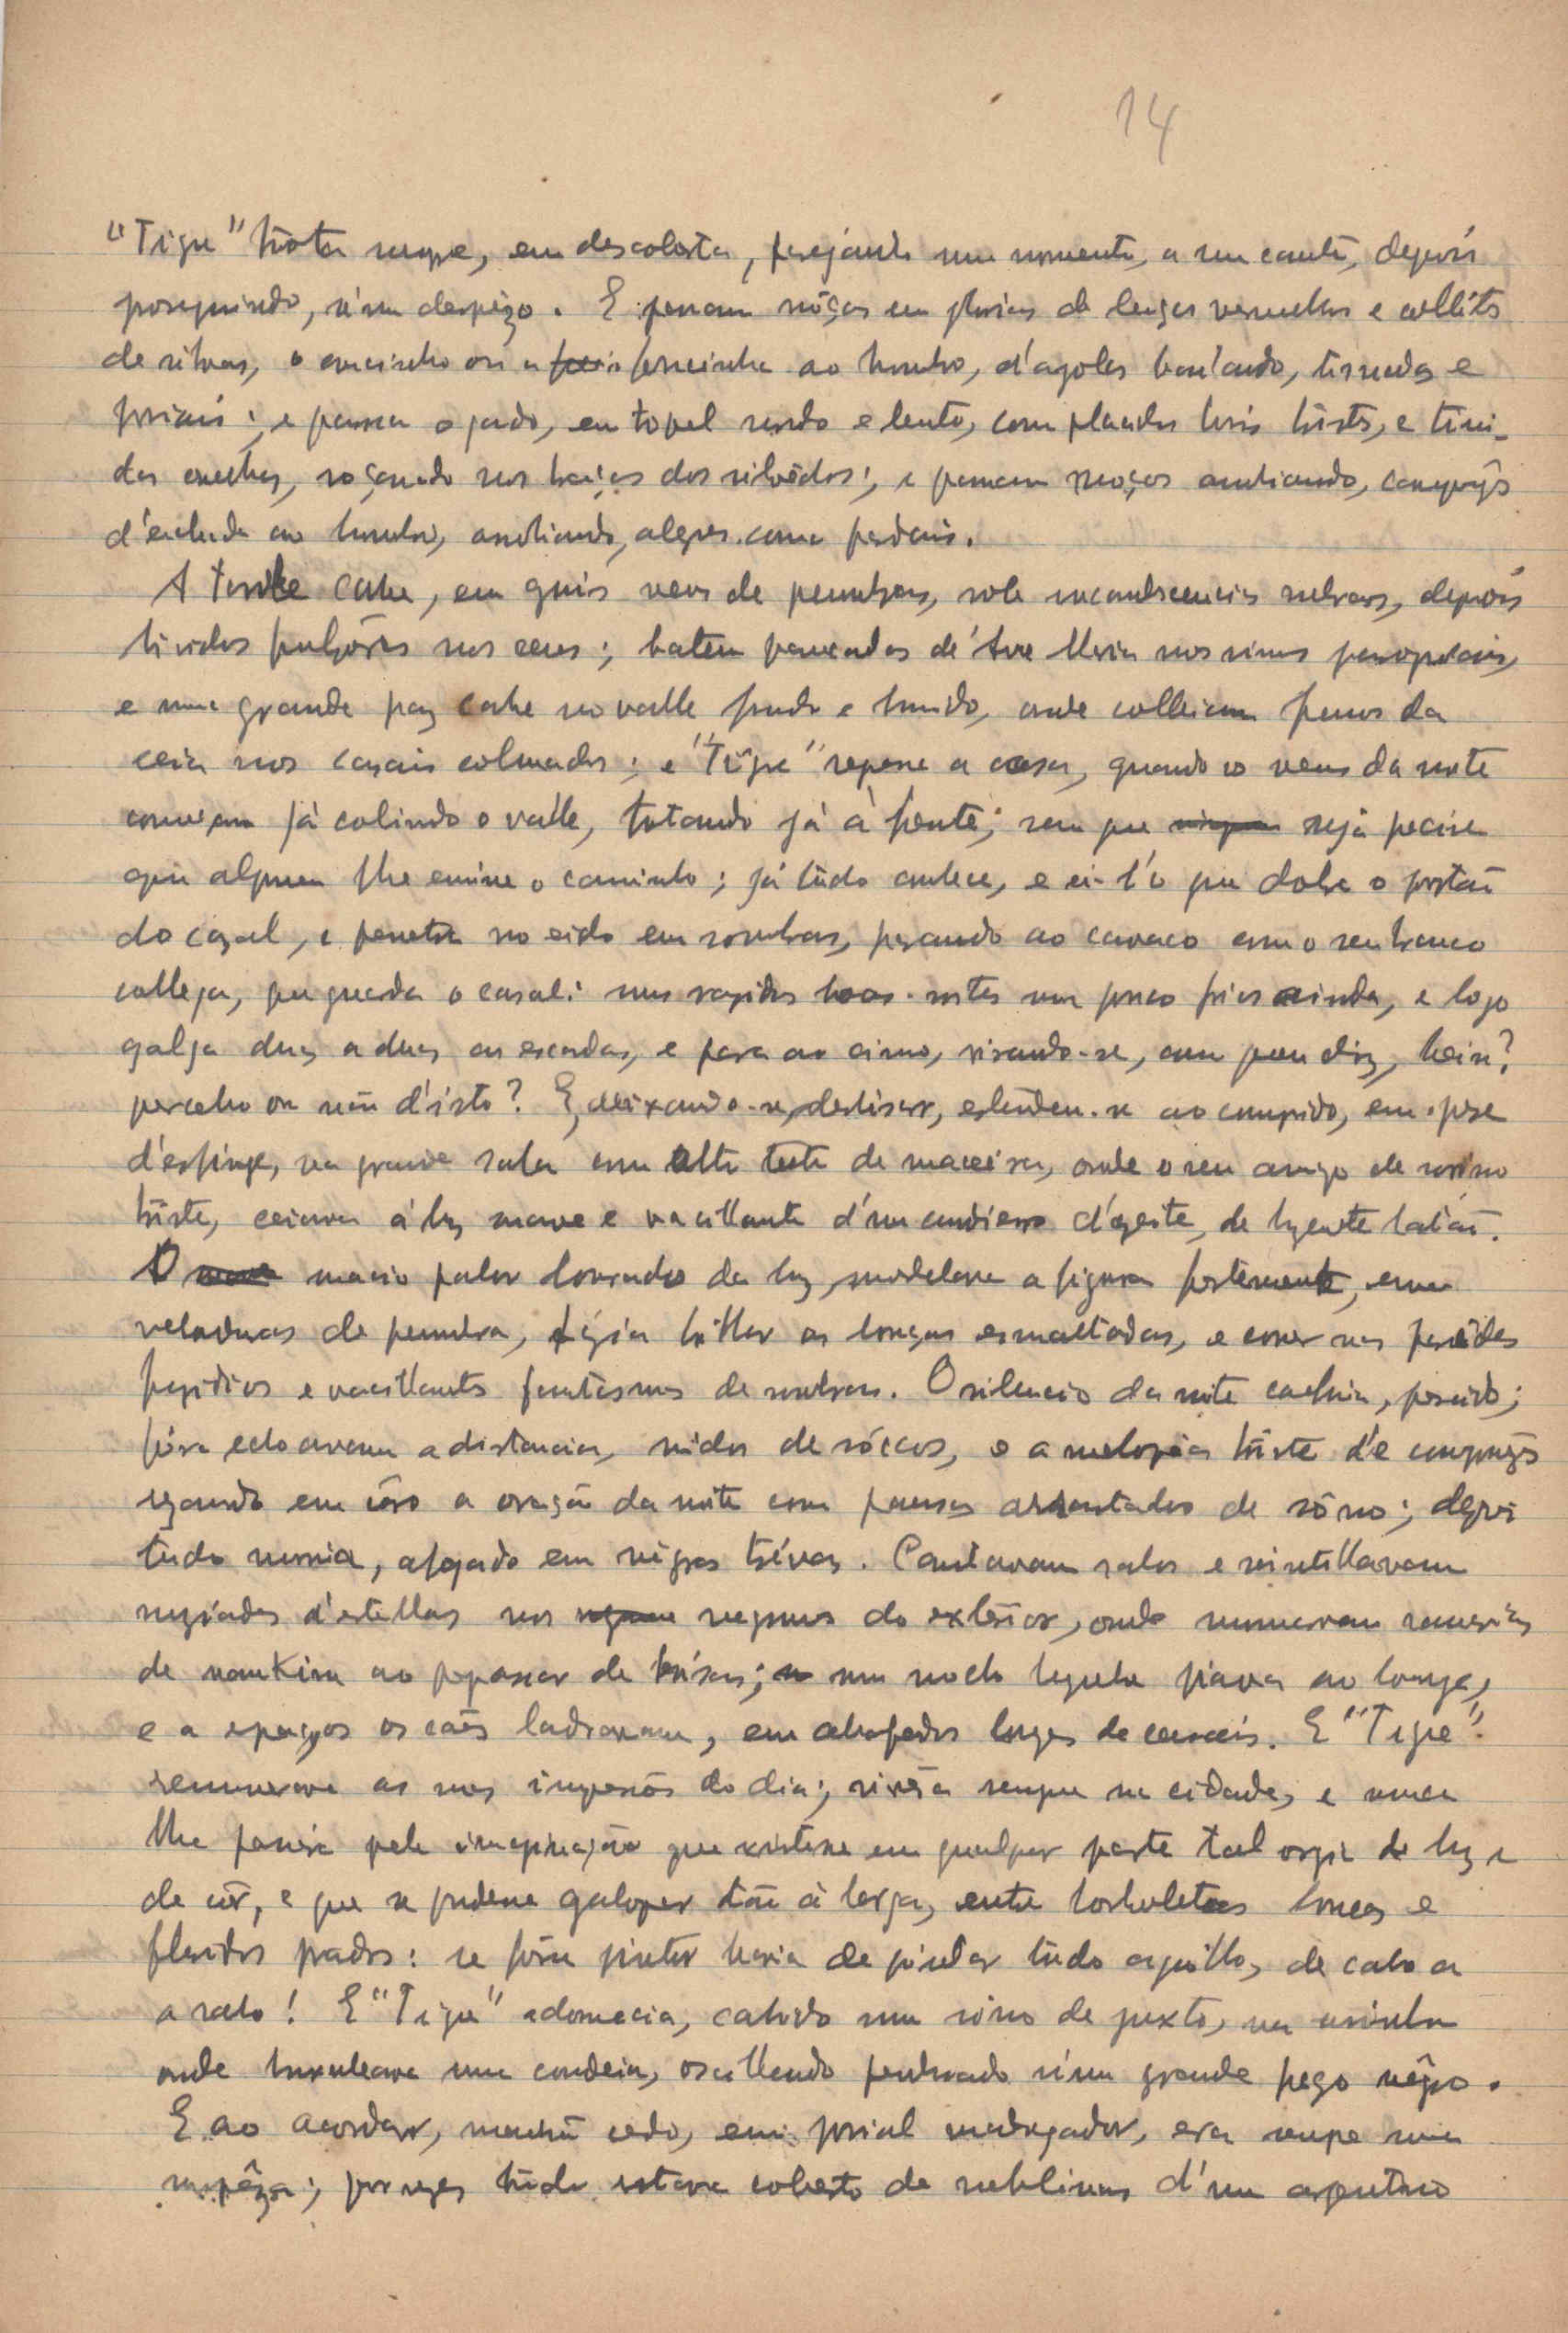 14
"Tigre" trota sempre, em descoberta, farejando um momento, a um canto, depois
proseguindo, n'um despêgo. E passam môças em glorias de lenços vermelhos e collêtes
de silvas, o ancinho ou a foucinha ao hombro, d'argolas bailando, tisnadas e
joviaes; e passa o gado, em tropel surdo e lento, com placidos bois tristes, e timi-
das ovelhas, roçando nos baixos dos silvêdos; e passam moços assobiando, camponêses
d'enchada ao hombro, assobiando, alegres como pardais.
A tarde cahe, em gris veus de penumbras, sob incandescencias rubras, depois
lividos fulgôres nos ceus; batem pancadas de Ave Maria nos sinos parochiais,
e uma grande paz cahe no valle fundo e humido, onde fumos da
ceia nos casais colmados; e "Tigre" regressa a casa, quando os veus da noite
começam já cobrindo o valle, trotando já à frente; sem que seja preciso
que alguem lhe ensine o caminho; já tudo conhece, e ei-l'o que dobra o portão
do casal, e penetra no eido em sombras, parando ao cavaco com o seu branco
collega, que guarda o casal: uns rapidos boas-noites um pouco frios ainda, e logo
galga duas a duas as escadas, e para ao cimo, virando-se, como quem diz, hein?
percebo ou não d'isto? E, deixando-se deslisar, estendeu-se ao comprido, em pose
d'esfinge, na grande sala com alto tecto de maceira, onde o seu amigo de sorriso
triste, ceiava á luz suave e vacillante d'um candieiro d'azeite, de luzente latão.
O macio palor dourado da luz, modelava a figura fortemente, em
veladuras de penumbra, fazia brilhar as louças esmaltadas, e correr nas paredes
fugidios e vacillantes fantasmas de sombras. O silencio da noite cahia, pesado;
fóra echoavam a distancia, ruidos de sócos, e a melopeia triste de camponêses
resando em côro a oração da noite com pausas arrastadas de sôno; depois
tudo sumia, afogado em nêgras trévas. Cantavam ralos e scintillavam
myriades d'estrellas nos negrumes do exterior, onde sumerjam ramarias
de nankim ao perpassar de brisas; um mocho lugubre piava ao longe,
e a espaços os cães ladravam, em abafados longes de casais. E "Tigre"
rememorava as suas impressões do dia; vivêra sempre na cidade, e nunca
lhe passára pela imaginação que existisse em qualquer parte tal orgia de luz e
de côr, e que se pudesse galopar tão à larga, entre borboletas loucas e
floridos prados: se fôra pintor havia de pintar tudo aquillo, de cabo a
a rabo! E "Tigre" adormecia, cahido num sôno de justo, na cosinha
onde bruxuleava uma candeia, oscillando pendurado n'um grande prego nêgro.
E ao acordar, manhã cedo, em jovial madrugador, era sempre uma
surprêsa; por vezes tudo estava coberto de neblinas d'um argentino